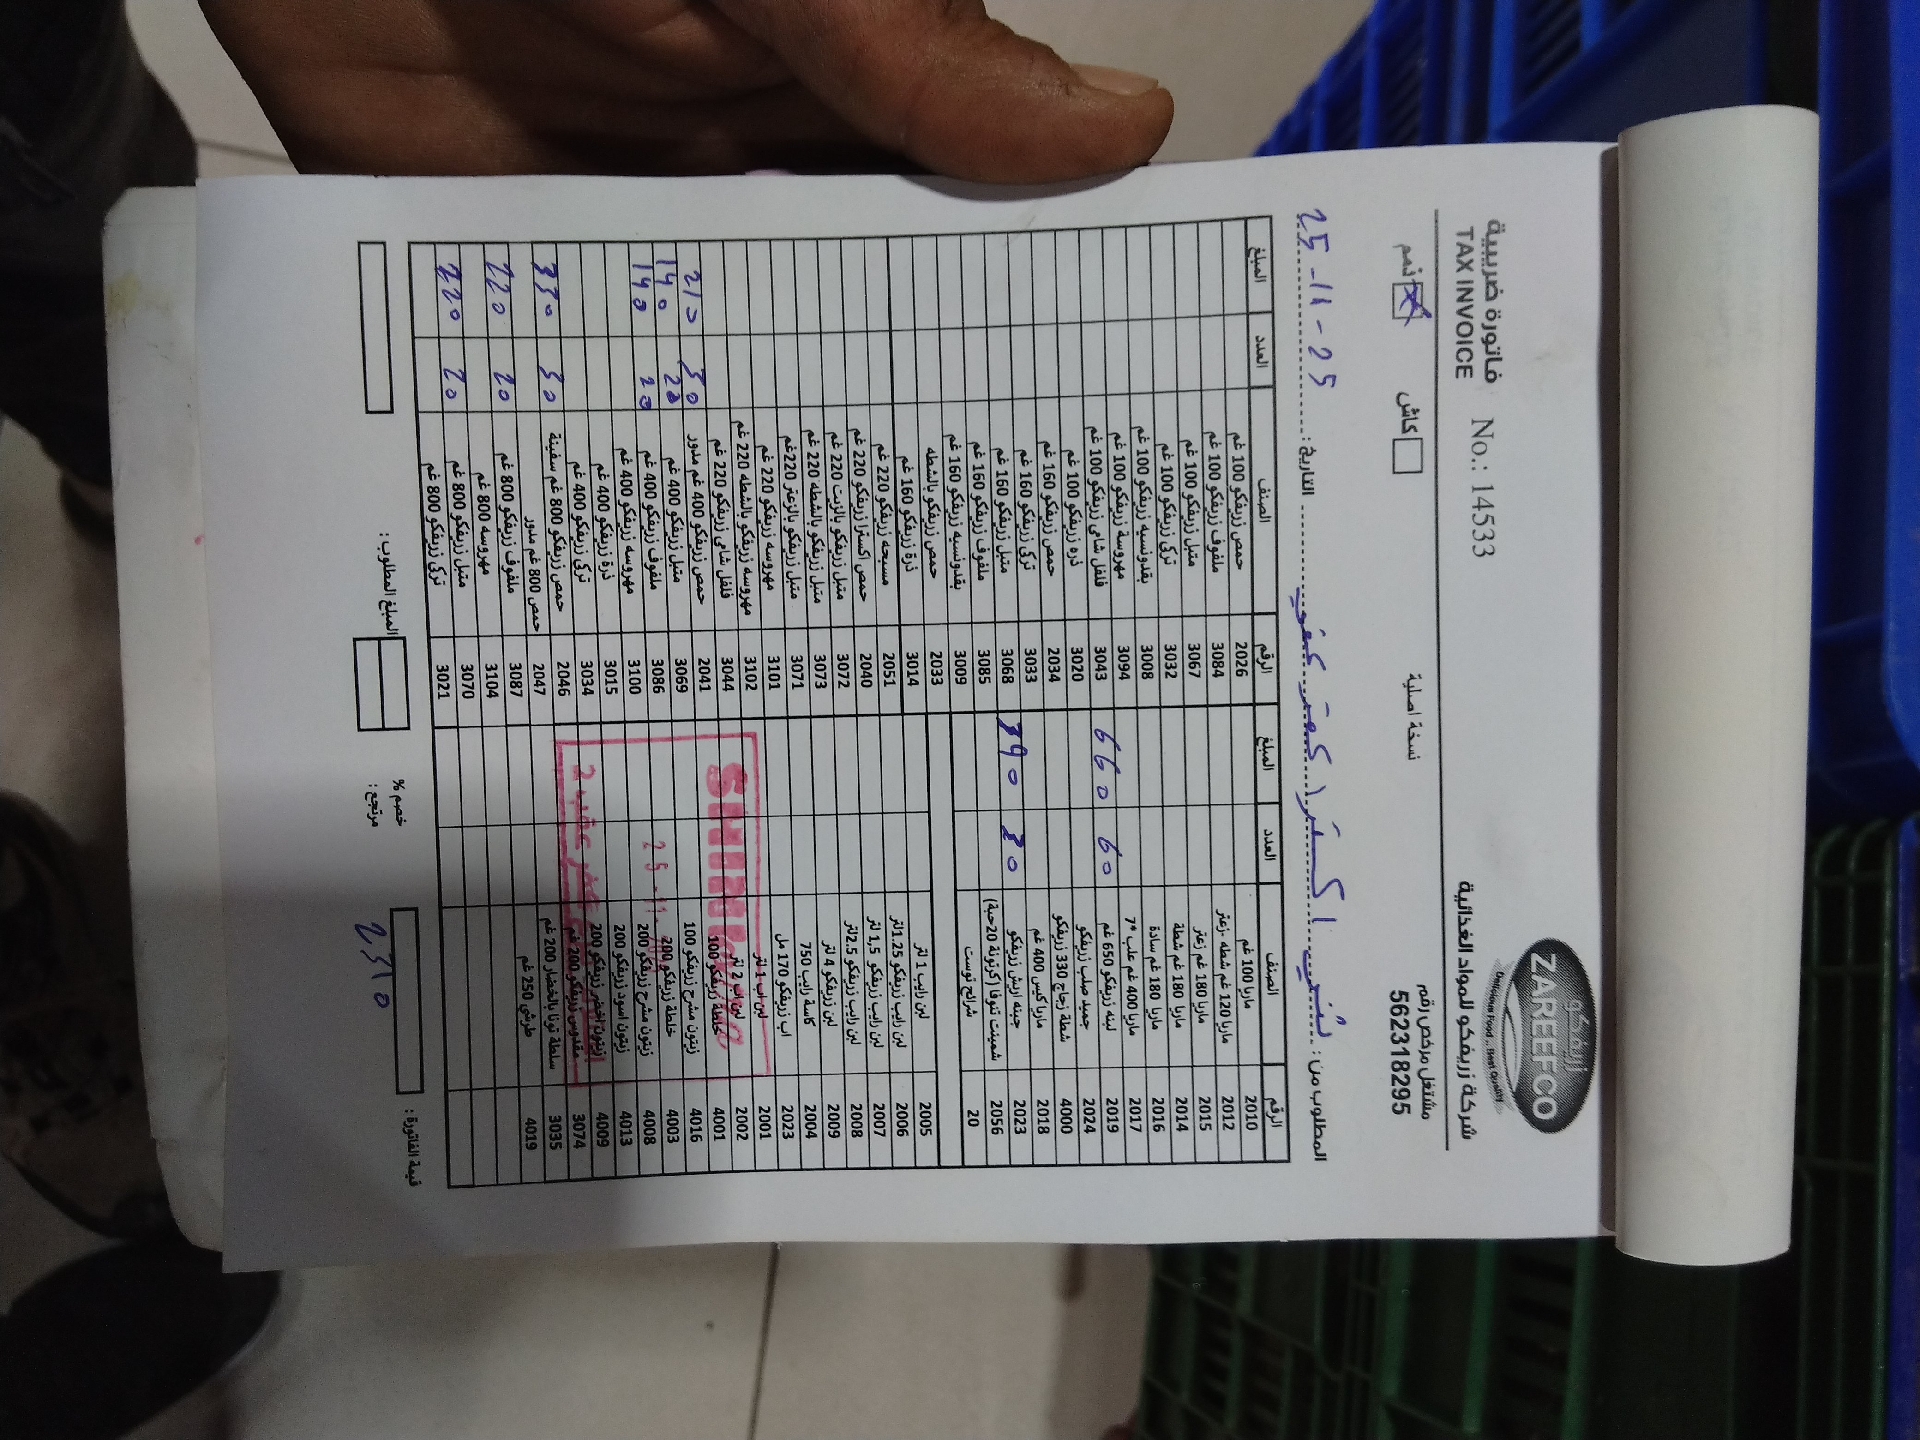 زريفكو
ZAREEFCO
Delicious Food .. Best Quality
شركة زريفكو للمواد الغذائية
فاتورة ضريبية
TAX INVOICE
No.: 14533
مشتغل مرخص رقم
562318295
نسخة اصلية
كاش
ذمم
المطلوب من:
التاريخ: 25-11-25
الرقم الصنف العدد المبلغ الرقم الصنف العدد المبلغ
2010 ماريا 100 غم 2026 حمص زريفكو 100 غم
2012 ماريا 120 غم شطه -زعتر 3084 ملفوف زريفكو 100 غم
2015 ماريا 180 غم زعتر 3067 متبل زريفكو 100 غم
2014 ماريا 180 غم شطة 3032 تركي زريفكو 100 غم
2016 ماريا 180 غم سادة 3008 بقدونسيه زريفكو 100 غم
2017 ماريا 400 غم علب *7 3094 مهروسة زريفكو 100 غم
2019 لبنه زريفكو 650 غم 60 660 3043 فلفل شامي زريفكو 100 غم
2024 جميد صلب زريفكو 3020 ذره زريفكو 100 غم
4000 شطة زجاج 330 زريفكو 2034 حمص زريفكو 160 غم
2018 مارياكيس 400 غم 3033 تركي زريفكو 160 غم
2023 جبنه اريش زريفكو 30 390 3068 متبل زريفكو 160 غم
2056 شمينت توفا (كرتونة 20حبة) 3085 ملفوف زريفكو 160 غم
20 شرائح توست 3009 بقدونسيه زريفكو 160 غم
2033 حمص زريفكو بالشطه
2005 لبن رايب 1 لتر 3014 ذرة زريفكو 160 غم
2006 لبن رايب 1.25لتر 2051 مسبحه زريفكو 220 غم
2007 لبن رايب زريفكو 1,5 لتر 2040 حمص اكسترا زريفكو 220 غم
2008 لبن رايب زريفكو 2,5لتر 3072 متبل زريفكو بالزيت 220 غم
2009 لبن زريفكو 4 لتر 3073 متبل زريفكو بالشطه 220 غم
2004 كاسة رايب 750 3071 متبل زريفكو بالزعتر 220غم
2023 اب زريفكو 170 مل 3101 مهروسه زريفكو 220 غم
2001 لبن اب 1 لتر 3102 مهروسه زريفكو بالشطه 220 غم
2002 لبن اب 2 لتر 3044 فلفل شامي زريفكو 220 غم
4001 خلطة زريفكو 100 2041 حمص زريفكو 400 غم مدور 30 210
4016 زيتون مشرح زريفكو 100 3069 متبل زريفكو 400 غم 20 140
4003 خلطة زريفكو 200 3086 ملفوف زريفكو 400 غم 20 140
4008 زيتون مشرح زريفكو 200 3100 مهروسه زريفكو 400 غم
4013 زيتون اسود زريفكو 200 3015 ذرة زريفكو 400 غم
4009 زيتون اخضر زريفكو 200 3034 تركي زريفكو 400 غم
3074 مقدوس زريفكو 200 غم 2046 حمص زريفكو 800 غم سفينة 30 330
3035 سلطة تونا بالخضار 200 غم 2047 حمص 800 غم مدور
4019 طرشي 250 غم 3087 ملفوف زريفكو 800 غم 20 220
3104 مهروسه 800 غم
3070 متبل زريفكو 800 غم 20 220
3021 تركي زريفكو 800 غم
25-11-
قيمة الفاتورة: 2310
خصم %
مرتجع:
المبلغ المطلوب: